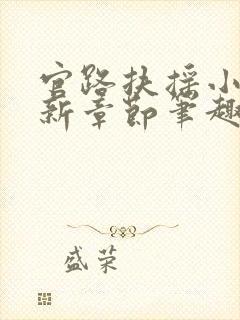 官路扶摇小
新章节笔趣
盛荣